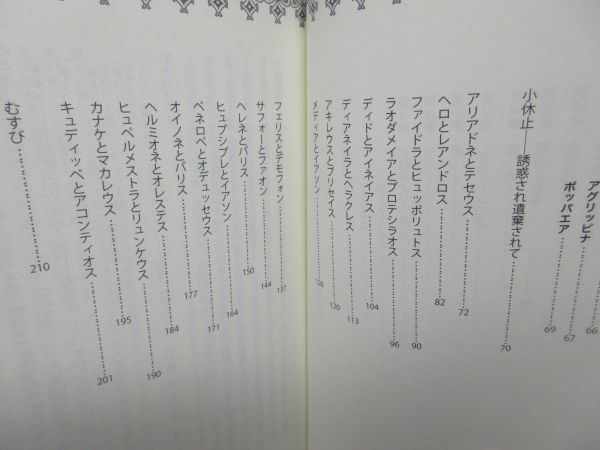 アグリッピナ……66
ポッパエア……67
……69
小休止──誘惑され遺棄されて……70
アリアドネとテセウス……72
ヘロとレアンドロス……82
ファイドラとヒュッポリュトス……90
ラオダメイアとプロテシラオス……96
ディドとアイネイアス……104
ディアネイラとヘラクレス……113
アキレウスとブリセイス……120
メディアとイアソン……126
フェリスとデモフォン……137
サフォーとファオン……144
ヘレネとパリス……150
ヒュプシプレとイアソン……164
ペネロペとオデュッセウス……171
オイノネとパリス……177
ヘルミオネとオレステス……184
ヒュペルメストラとリュンケウス……190
カナケとマカレウス……195
キュディッペとアコンティオス……201
むすび……210